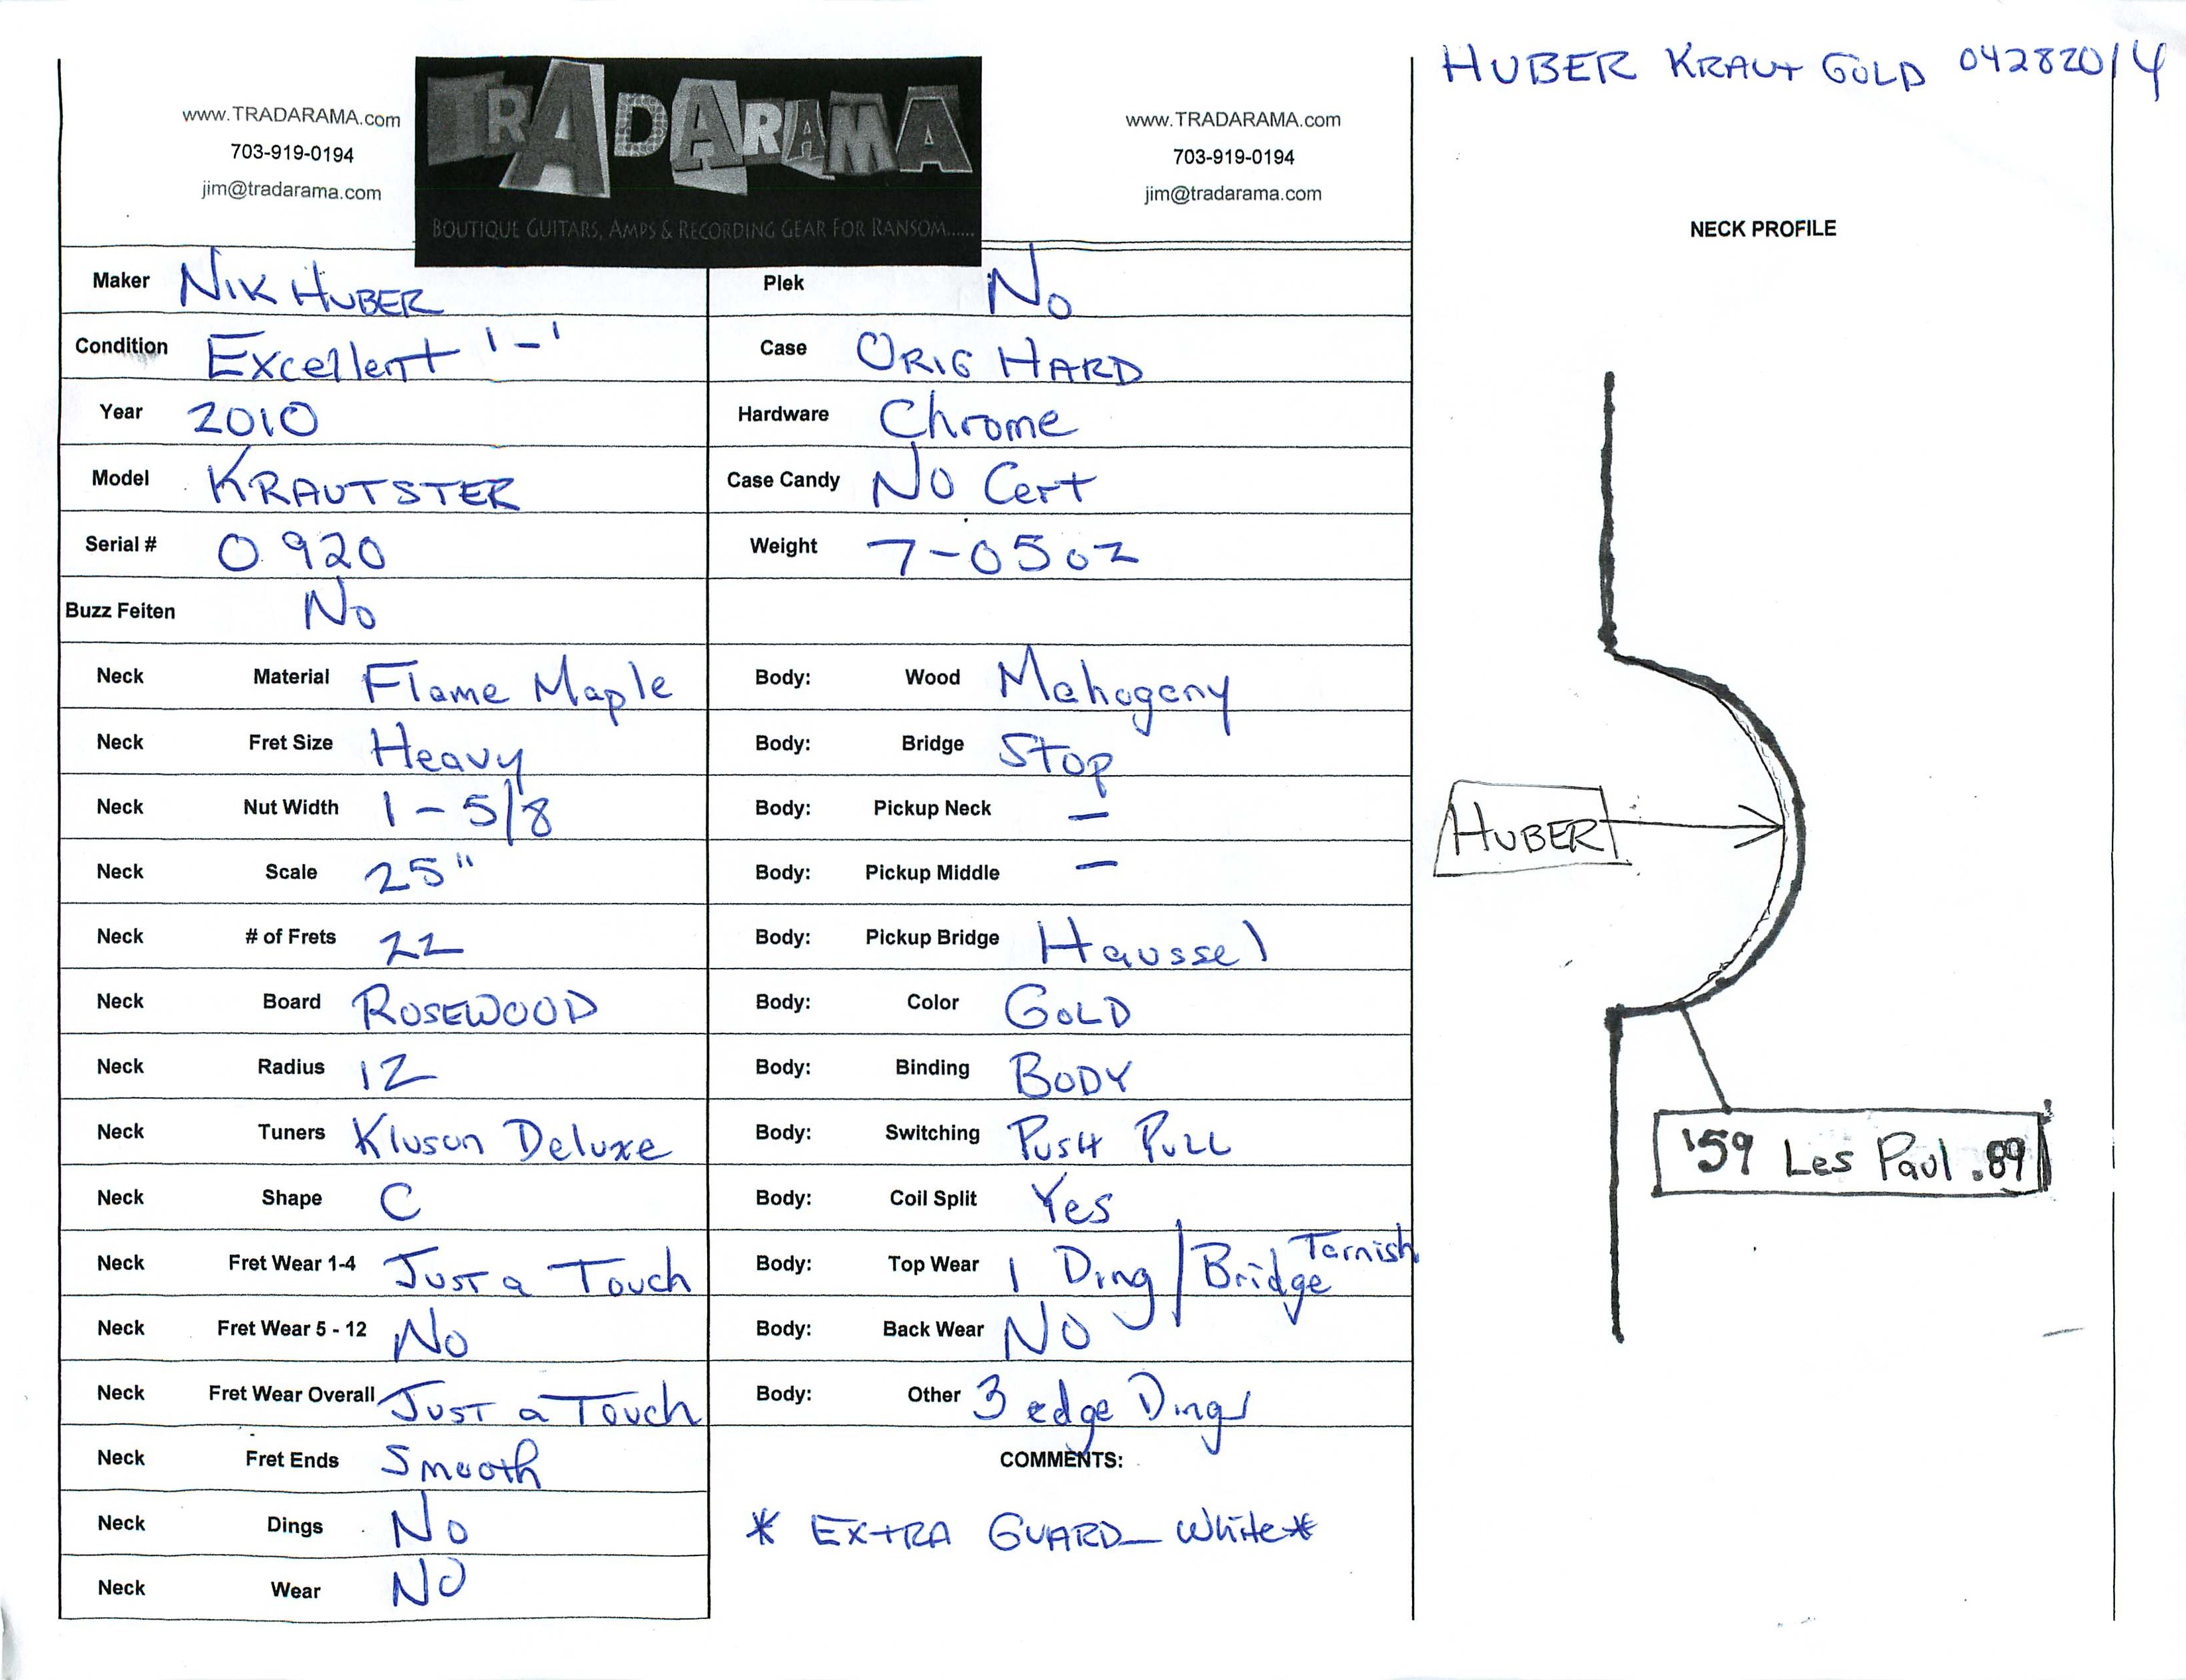 HUBER KRAUT GOLD 04282014
www.TRADARAMA.com
703-919-0194
jim@tradarama.com
TRADARAMA
BOUTIQUE GUITARS, AMPS & RECORDING GEAR FOR RANSOM......
www.TRADARAMA.com
703-919-0194
jim@tradarama.com
Maker NIK HUBER
Condition Excellent '-'
Year 2010
Model KRAUTSTER
Serial # 0920
Buzz Feiten No
Neck Material Flame Maple
Neck Fret Size Heavy
Neck Nut Width 1-5/8
Neck Scale 25"
Neck # of Frets 22
Neck Board ROSEWOOD
Neck Radius 12
Neck Tuners Kluson Deluxe
Neck Shape C
Neck Fret Wear 1-4 JUST a Touch
Neck Fret Wear 5 - 12 No
Neck Fret Wear Overall JUST a Touch
Neck Fret Ends Smooth
Neck Dings No
Neck Wear NO
Plek No
Case ORIG HARD
Hardware Chrome
Case Candy NO Cert
Weight 7-05oz
Body: Wood Mahogany
Body: Bridge Stop
Body: Pickup Neck —
Body: Pickup Middle —
Body: Pickup Bridge Haussel
Body: Color GOLD
Body: Binding BODY
Body: Switching PUSH PULL
Body: Coil Split Yes
Body: Top Wear 1 Ding / Bridge Tarnish
Body: Back Wear NO
Body: Other 3 edge Dings
COMMENTS:
* EXTRA GUARD - White *
NECK PROFILE
HUBER
'59 Les Paul .89